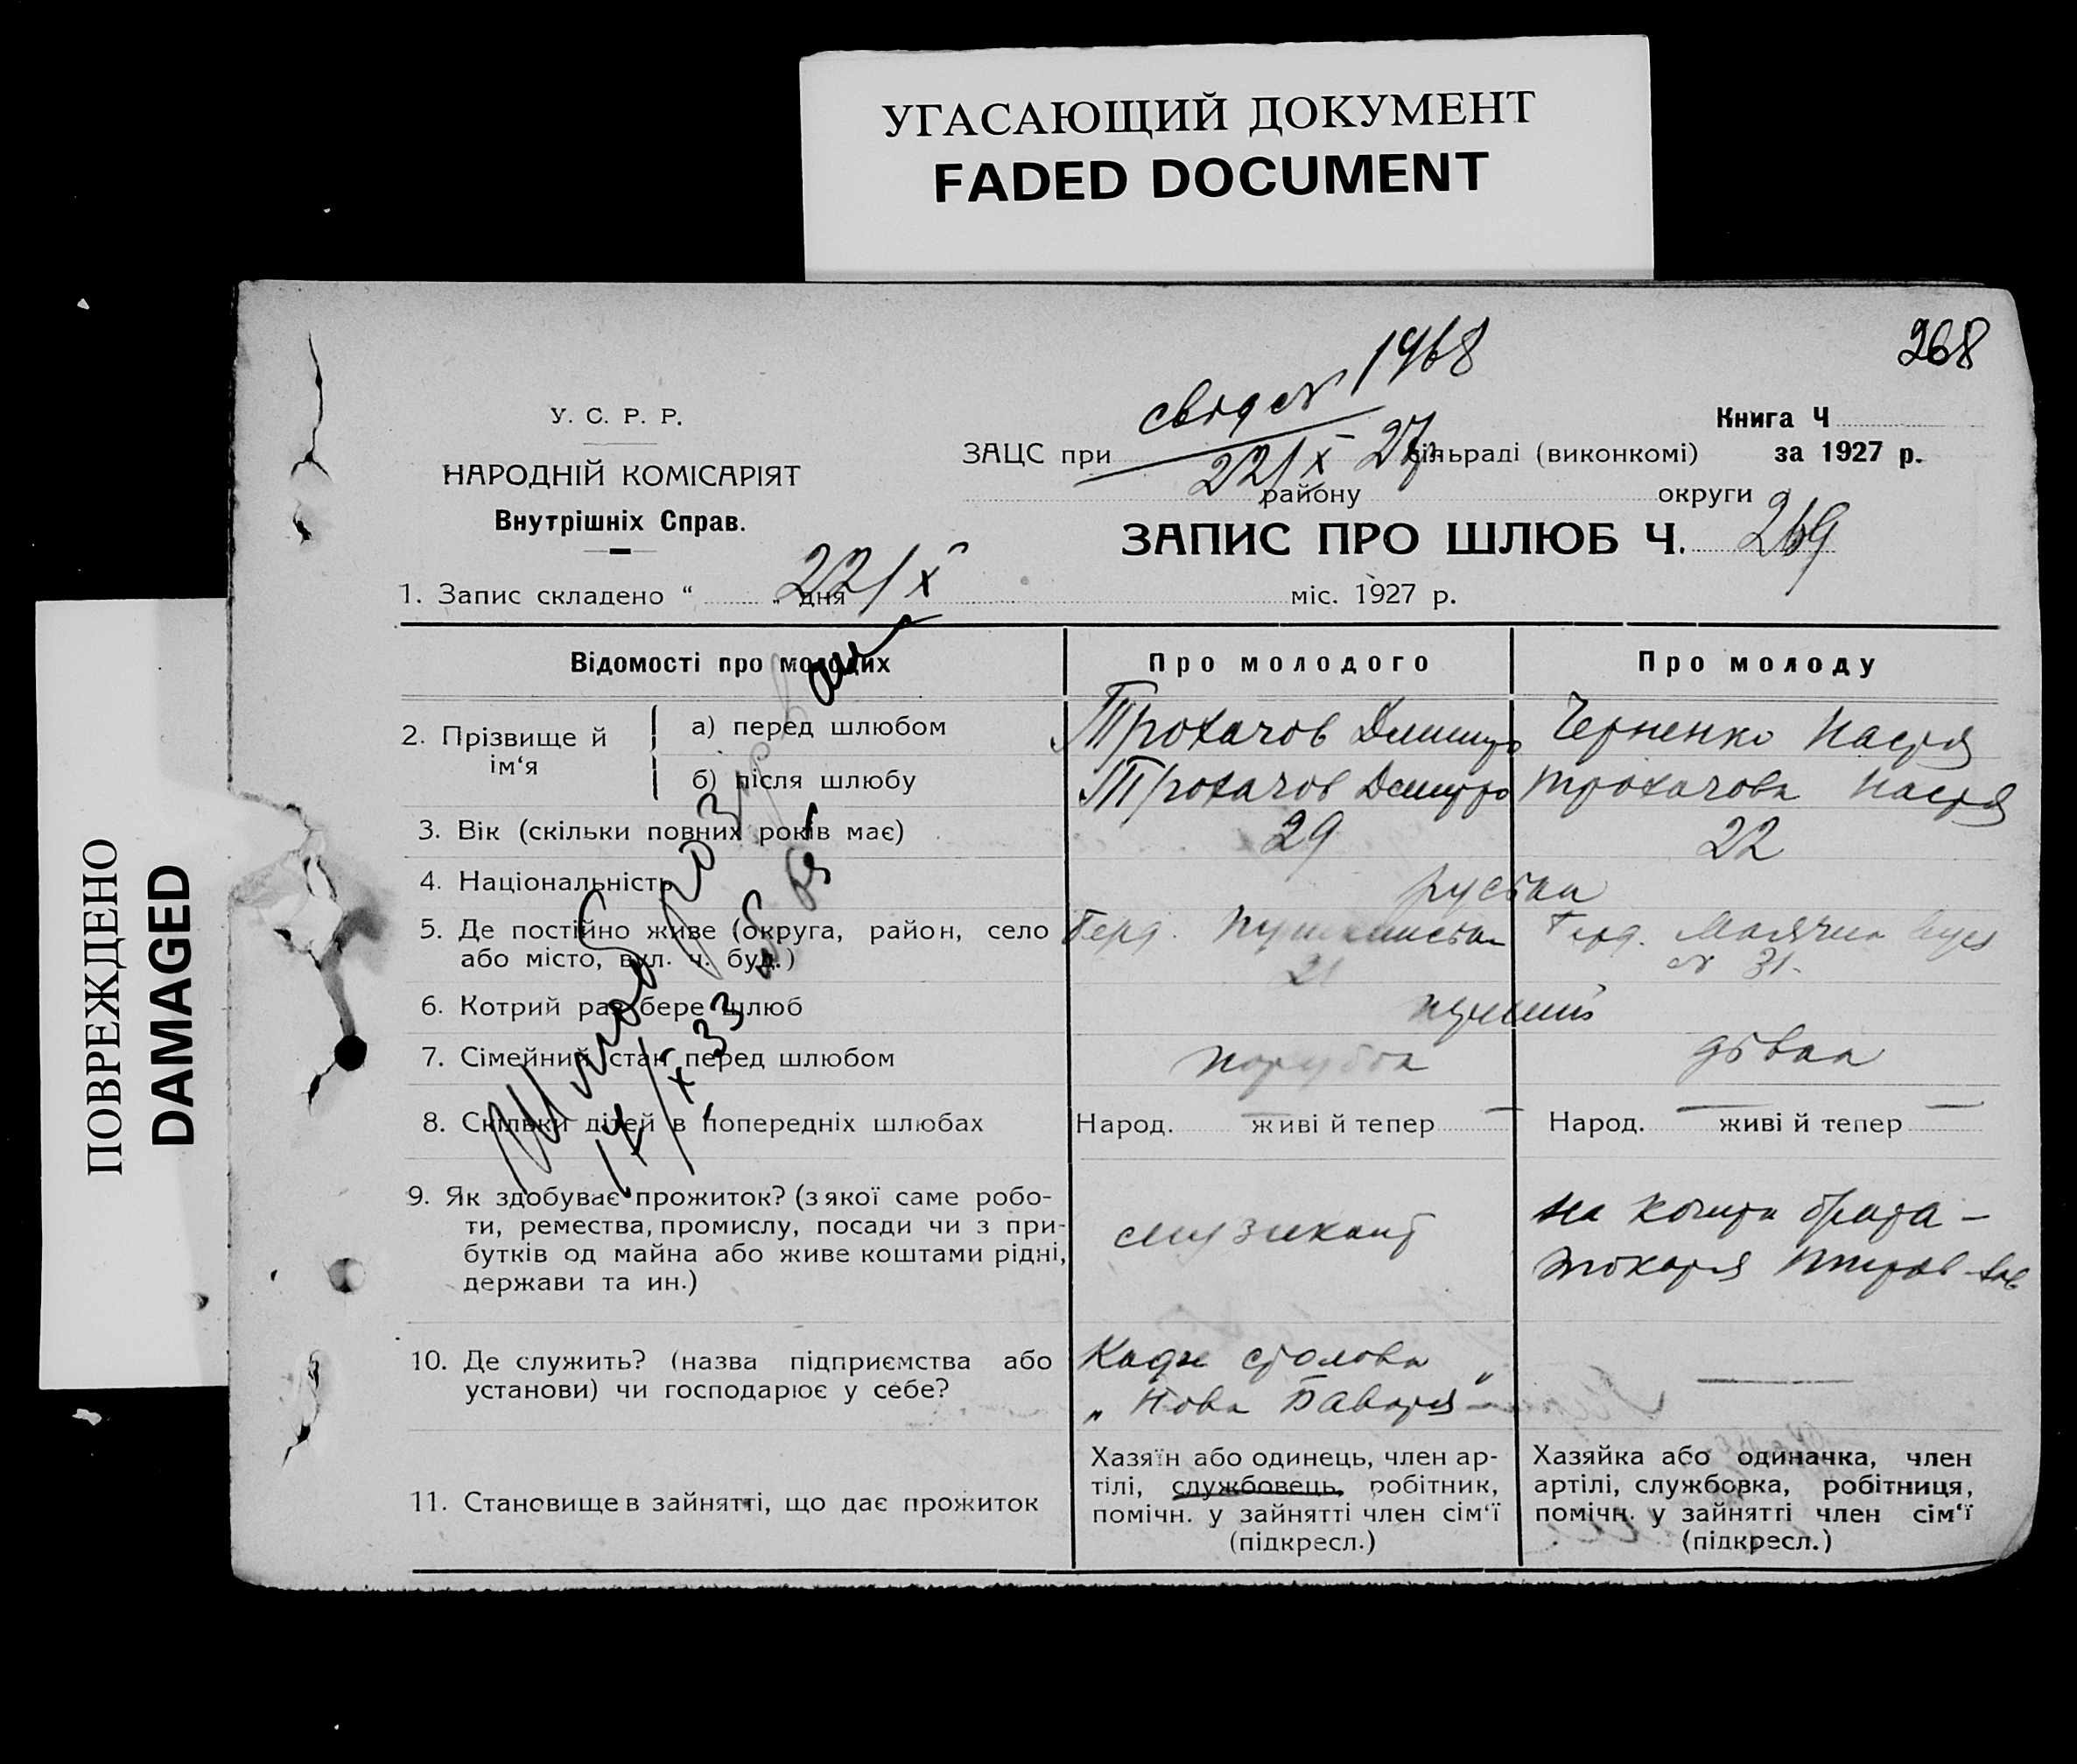 УГАСАЮЩИЙ ДОКУМЕНТ
FADED DOCUMENT
ПОВРЕЖДЕНО
DAMAGED
268
У. С. Р. Р.
НАРОДНІЙ КОМІСАРІЯТ
Внутрішніх Справ.
1468
22/X 27
Книга Ч
ЗАЦС при сільраді (виконкомі) за 1927 р.
району округи
ЗАПИС ПРО ШЛЮБ Ч. 269
1. Запис складено “ „ дня 22/X міс. 1927 р.
Відомості про молодих Про молодого Про молоду
2. Прізвище й ім‘я
а) перед шлюбом Трохачов Дмитро Черненко Настя
б) після шлюбу Трохачов Дмитро Трохачова Настя
3. Вік (скільки повних років має) 29 22
4. Національність руськи
5. Де постійно живе (округа, район, село
або місто, вул. ч. буд.)
21
№ 31.
6. Котрий раз бере шлюб перший
7. Сімейний стан перед шлюбом парубок дівка
8. Скільки дітей в попередніх шлюбах Народ. — живі й тепер — Народ. — живі й тепер —
9. Як здобуває прожиток? (з якої саме робо-
ти, ремества, промислу, посади чи з при-
бутків од майна або живе коштами рідні,
держави та ин.)
музикант
на кошти брата –
токаря
10. Де служить? (назва підприємства або
установи) чи господарює у себе?
столова
„Нова Баварія“
—
11. Становище в зайнятті, що дає прожиток
Хазяїн або одинець, член ар-
тілі, службовець, робітник,
помічн. у зайнятті член сім‘ї
(підкресл.)
Хазяйка або одиначка, член
артілі, службовка, робітниця,
помічн. у зайнятті член сім‘ї
(підкресл.)
Шлюб розірвано